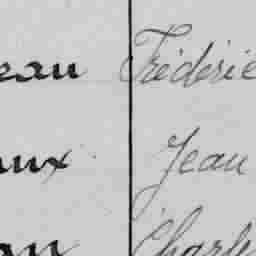 eau Frédéric
aux Jean
an Charle